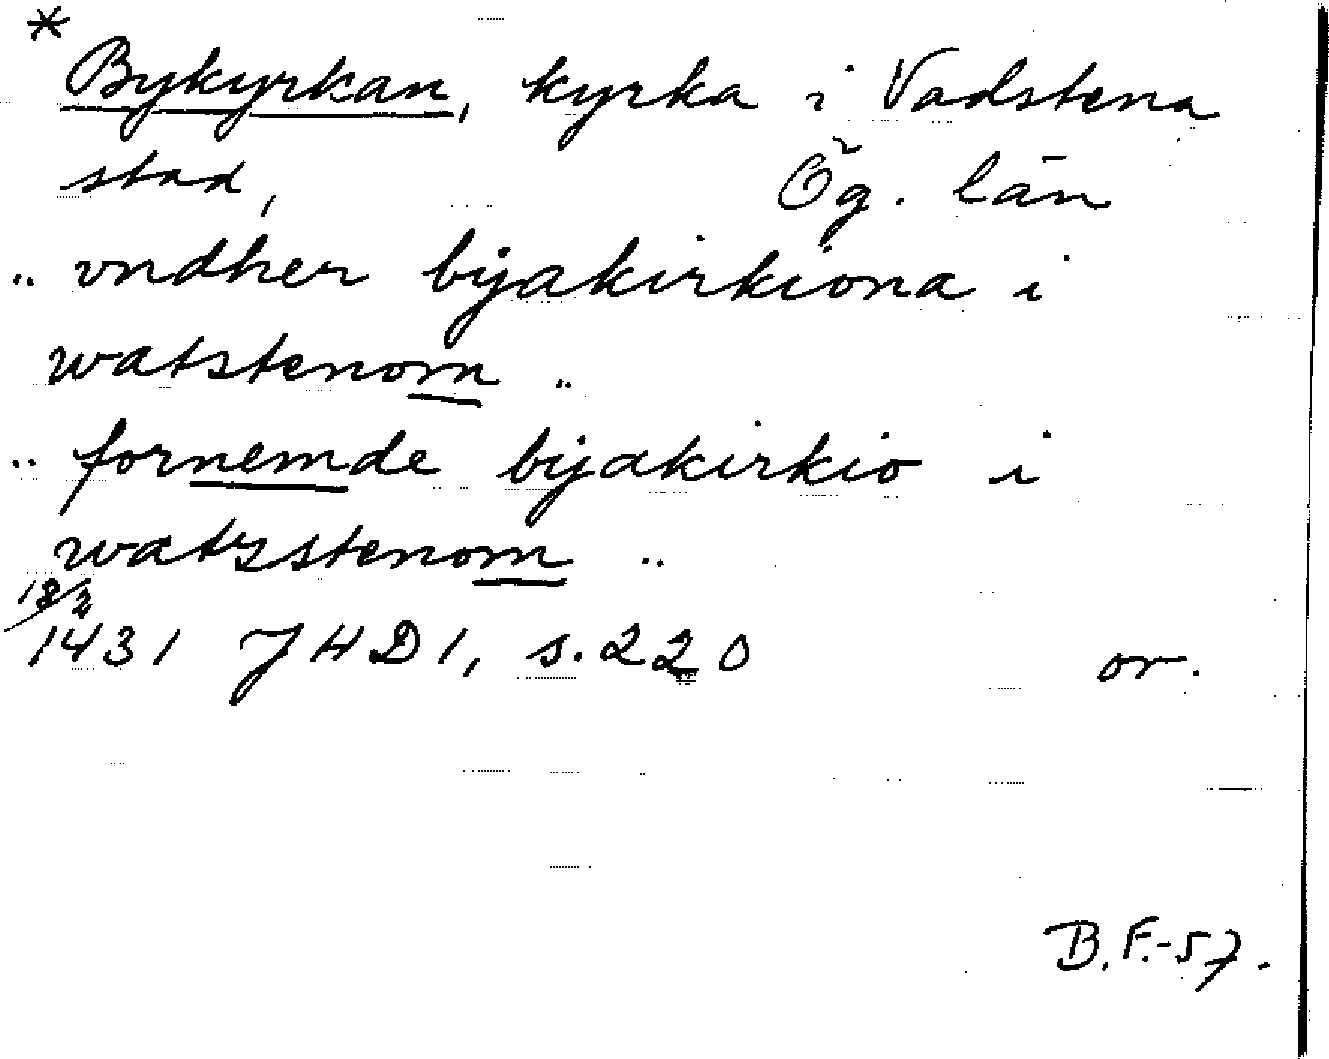 *
Bykyrkan, kyrka i Vadstena
stad, Ög. län
"vndher bijakirkiona i
watstenom"
"fornemde bijakirkio i
watzstenom"
18/3
1431 JHD 1, s. 220 or.
B.F.-57.